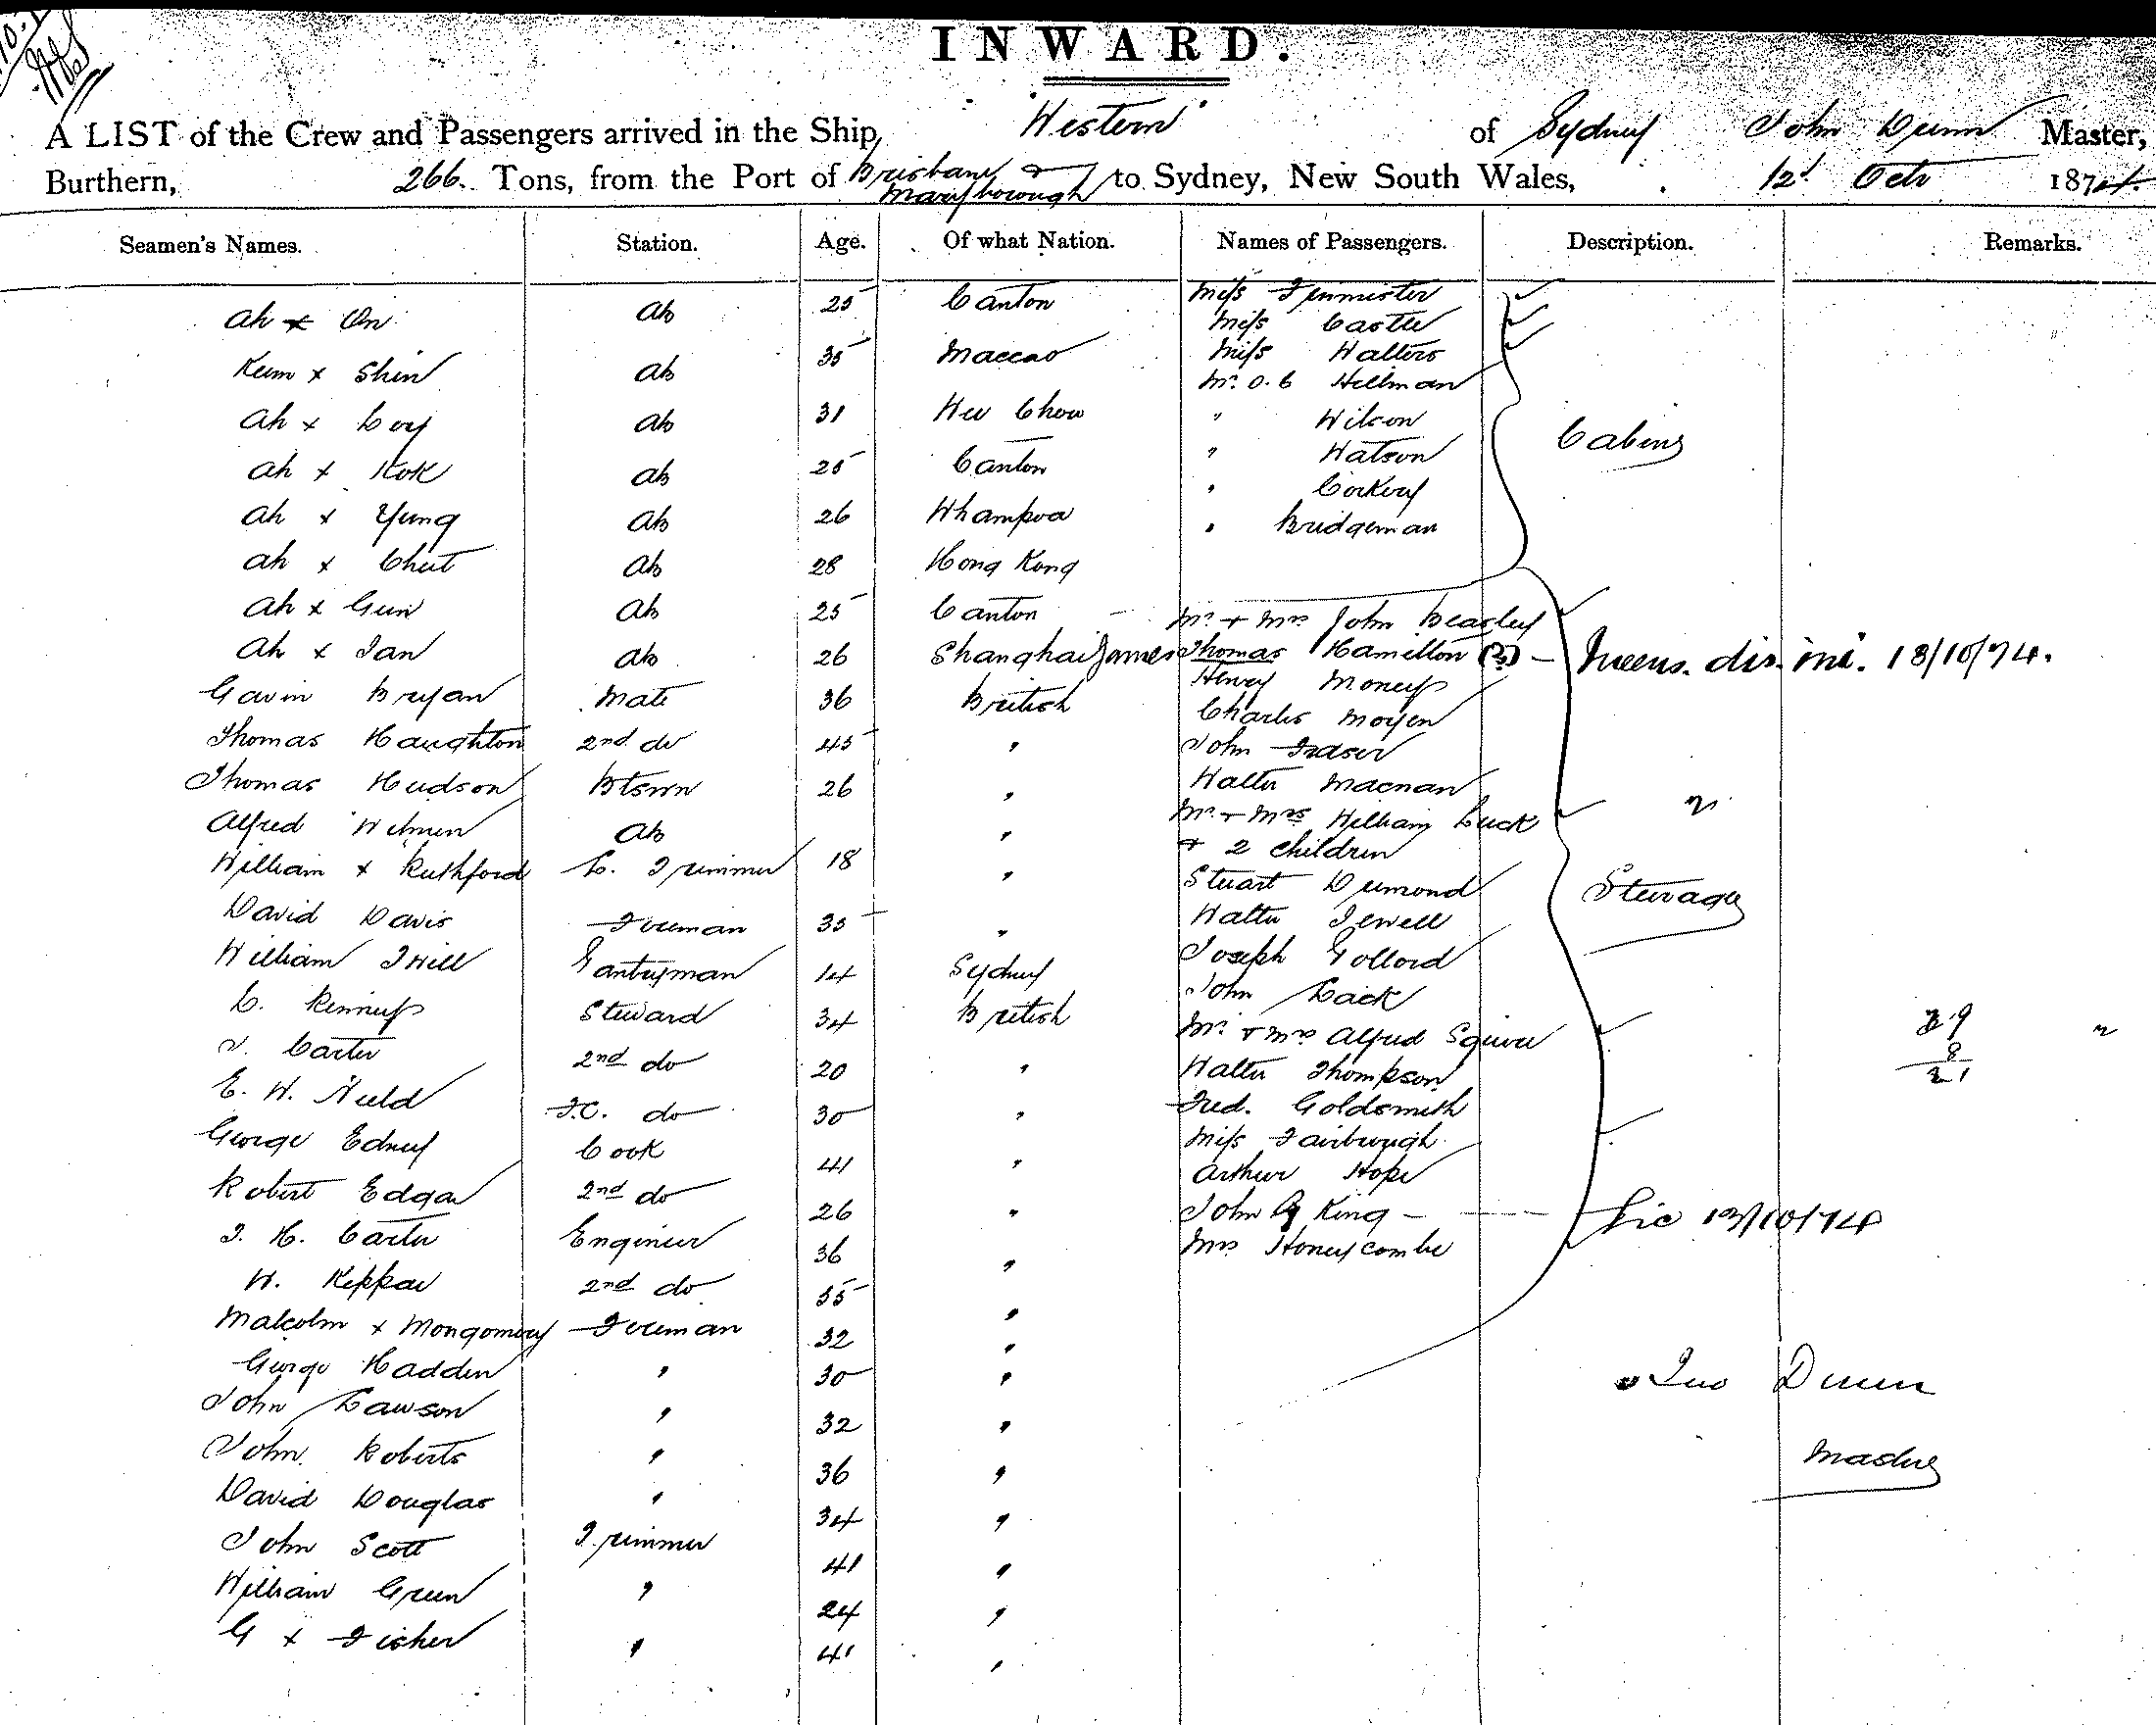 INWARD.
A LIST of the Crew and Passengers arrived in the Ship, "Western" of Sydney John Dunn Master,
Burthern, 266. Tons, from the Port of Brisbane & Maryborough to Sydney, New South Wales, 12th Octr 1874.
Seamen's Names. Station. Age. Of what Nation. Names of Passengers. Description. Remarks.
Ah x On Ab 25 Canton Miss Fenmister
Miss Castle
Keem x Shin Ab 35 Maccao Miss Walters
Mr. O. C Hillman
Ah x Coy Ab 31 Wu Chow " Wilson Cabins
Ah x Kok Ab 25 Canton " Watson
" Corkery
Ah x Yung Ab 26 Whampoa " Bridgeman
Ah x Chut Ab 28 Hong Kong
Ah x Gun Ab 25 Canton Mr. & Mrs John Beasley
Ah x Ian Ab 26 Shanghai James Thomas Hamilton (?) Queens. dis. ini. 13/10/74.
Gavin Bryan Mate 36 British Henry Money
Charles Moyen
Thomas Haughton 2nd do 45 " John Fraser
Thomas Hudson Btswn 26 " Walter Macnan
Alfred Wilmen Ab " Mr. & Mrs William Luck
& 2 Children
William x Ruthford L. Trimmer 18 " Stuart Dumond Steerage
David Davis Fireman 35 " Walter Jewell
William Twill Gantryman 14 Sydney Joseph Gollord
C. Kenny Steward 34 British John Lack
J. Carter 2nd do 20 " Mr. & Mrs Alfred Squire 29
8
21
Walter Thompson
E. W. Nield F.C. do 30 " Fred. Goldsmith
George Edney Cook 41 " Miss Fairbrough
Arthur Hope
Robert Edgar 2nd do 26 " John King Lic 13/10/74
J. H. Carter Engineer 36 " Mrs Honeycombe
W. Keppa 2nd do 35 "
Malcolm x Mongomery Fireman 32 "
George Hadden " 30 " Jno Dunn
John Lawson " 32 "
John Roberts " 36 " Master
David Douglas " 34 "
John Scott Trimmer 41 "
William Green " 24 "
G x Fisher " 41 "